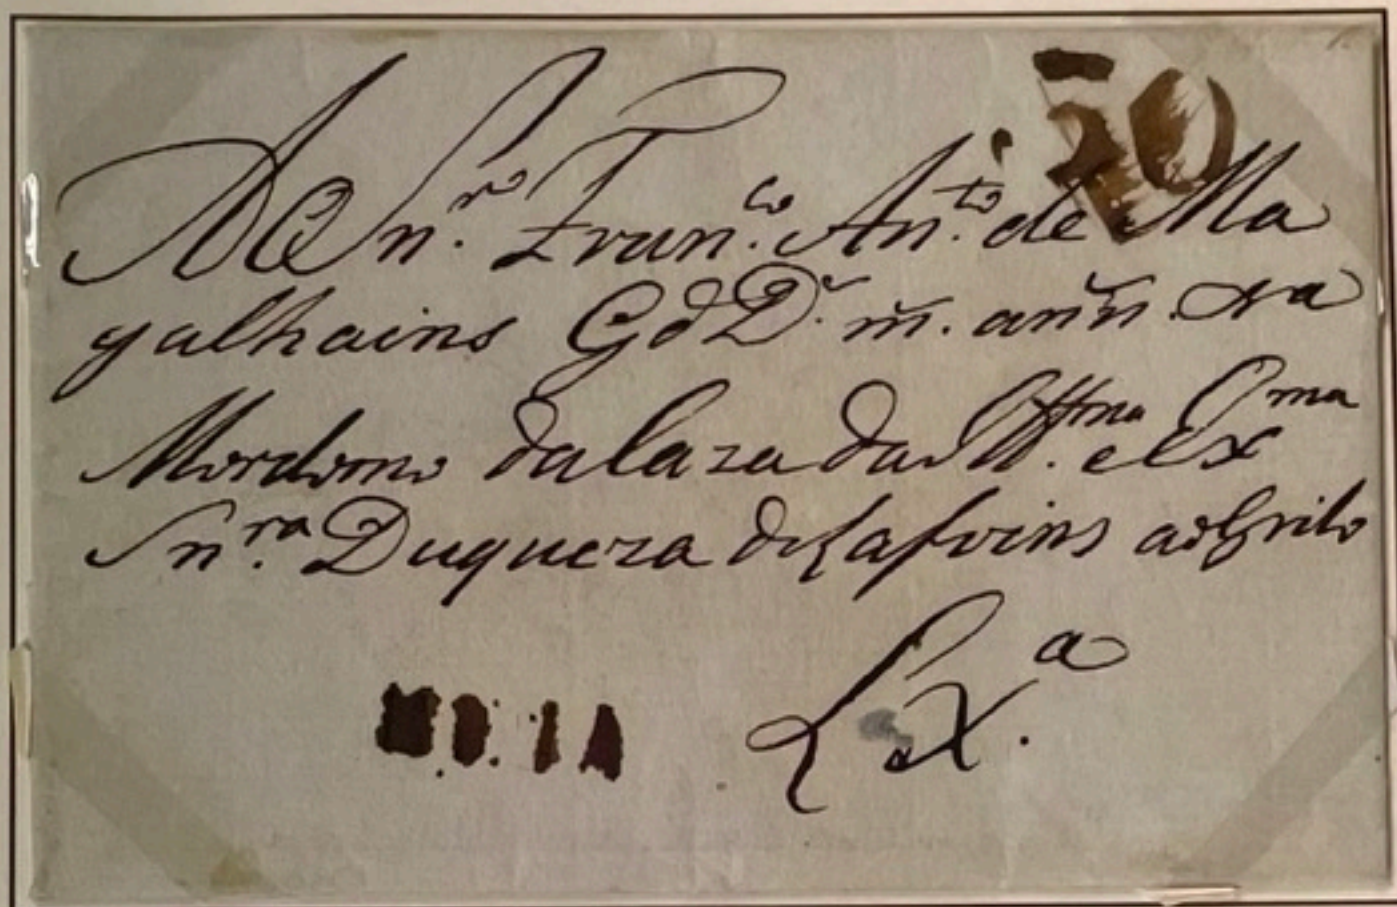 50
Ao Snr. Franco. Anto. de Ma
galhains Gde Ds. m. ann. na
Mordomo da Caza da Illma. e Exma
Snra. Duqueza de Lafoins ao Grilo
Lxa.